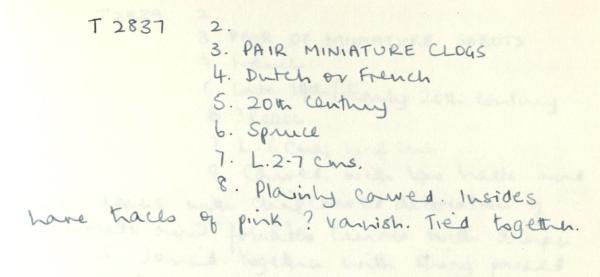 T 2837 2.
3. PAIR MINIATURE CLOGS
4. Dutch or French
5. 20th Century
6. Spruce
7. L. 2-7 cms.
8. Plainly carved. Insides
have traces of pink ? varnish. Tied together.